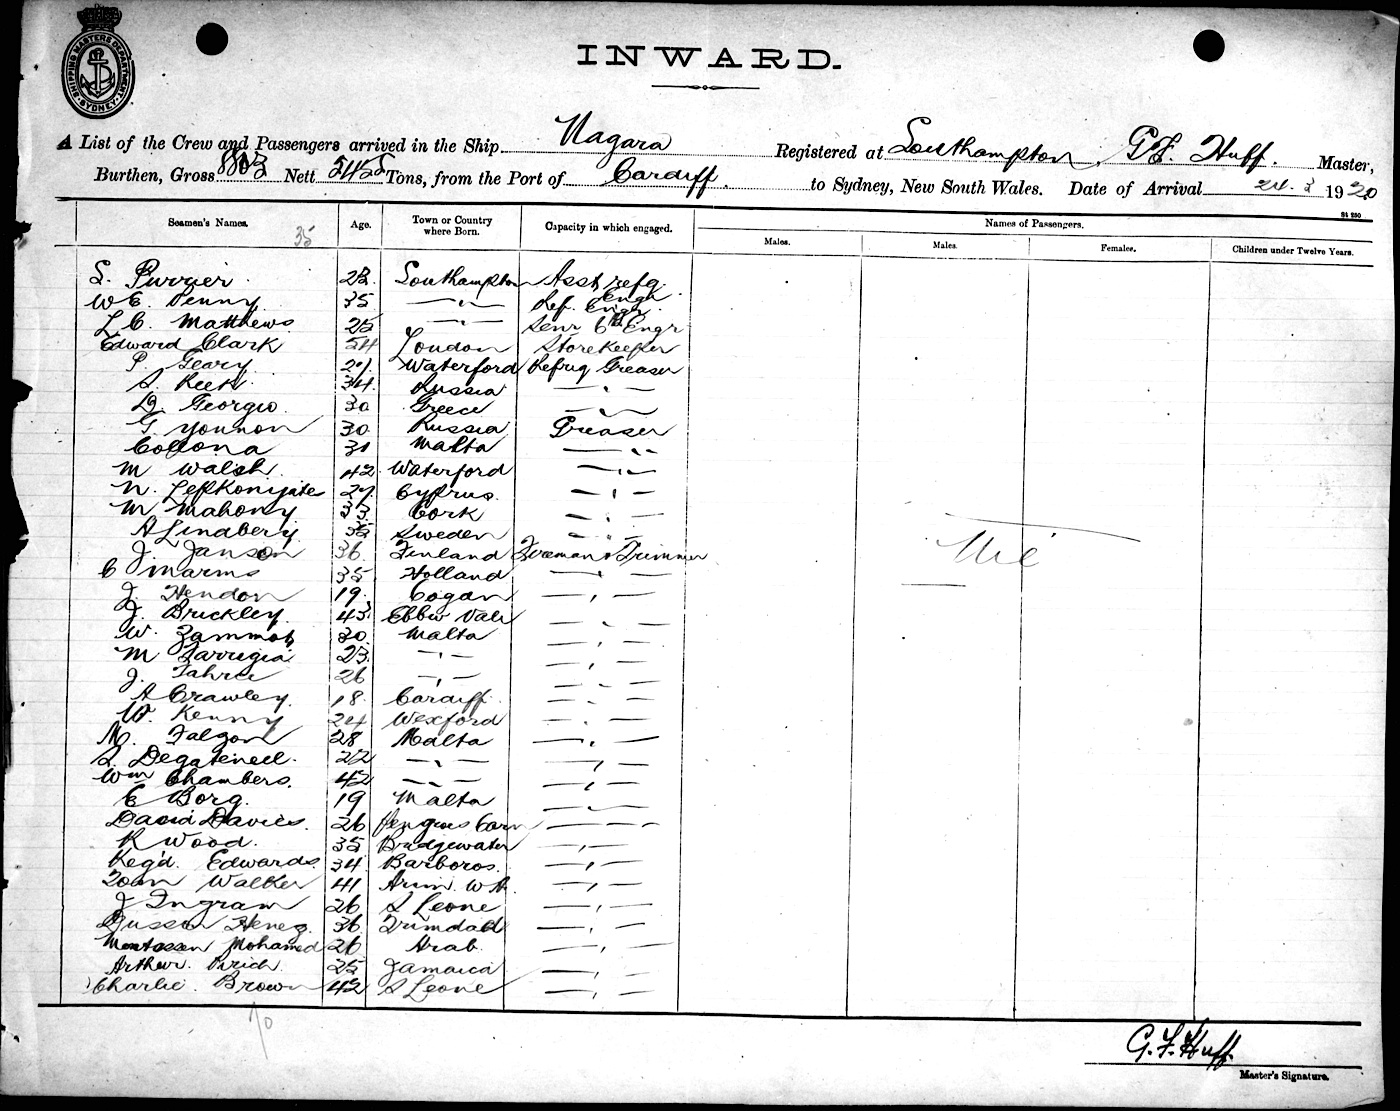 SHIPPING MASTERS DEPARTMENT SYDNEY
INWARD.
A List of the Crew and Passengers arrived in the Ship Nagara Registered at Southampton, G F. Huff. Master,
Burthen, Gross 8803 Nett 5455 Tons, from the Port of Cardiff. to Sydney, New South Wales. Date of Arrival 24. 3 1920
St 250
Seamen's Names. Age. Town or Country where Born. Capacity in which engaged. Names of Passengers.
Males. Males. Females. Children under Twelve Years.
35
S. Purrier 23. Southampton Asst refg. Engr
W E. Penny 35 — " — Ref. Engr.
L C. Matthews 25 — " — Senr 6th Engr
Edward Clark 54 London Storekeeper
P. Geary. 27. Waterford Refrig Greaser
S. 34. Russia — " —
D. Georgio. 30 Greece — " —
G Younon 30 Russia Greaser
Collona 31 Malta — " —
M Walsh. 42 Waterford — " —
N. 27. Cyprus. — " —
M Mahony 33. Cork — " —
A Lindberg 35 Sweden — " —
J. Janson 36 Finland Fireman & Trimmer
C Marms 35 Holland — " —
J. Hendon 19. Cogan — " —
J. Brickley. 43. Ebbw Vale — " —
W. Zammot 30. Malta — " —
M Farrugia 23. — " — — " —
J. 26 — " — — " —
A Crawley. 18. Cardiff. — " —
W. Kenny 24 Wexford — " —
M. Falzon 28 Malta — " —
S. 22 — " — — " —
Wm Chambers. 42 — " — — " —
E Borg. 19 Malta — " —
David Davies. 26 Penygroes Carn — " —
R Wood. 35 Bridgewater — " —
Reg'd. Edwards. 34. Barboros. — " —
Tom Walker 41 W A. — " —
J Ingram 26 S Leone — " —
36 Trinidad — " —
Mohamed 26 Arab. — " —
Arthur. 25 Jamaica — " —
Charlie. Brown 42 S Leone — " —
Nil
70
G. F. Huff.
Master's Signature.